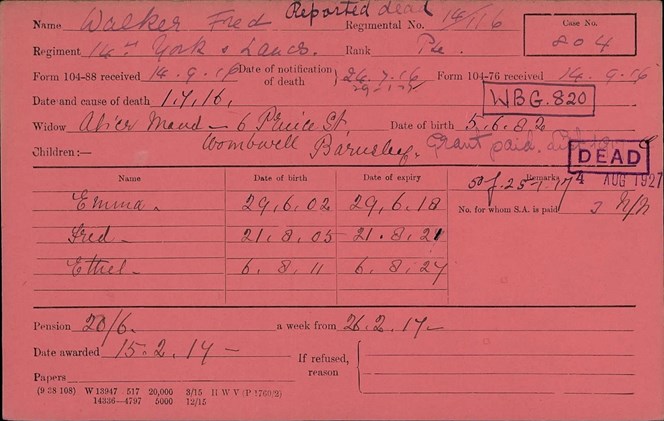 Reported dead
Name Walker Fred Regimental No. 14/116 Case No.
Regiment 14th York & Lancs. Rank Pte. 804
Form 104-88 received 14.9.16 Date of notification of death 24.7.16 Form 104-76 received 14.9.16
Date and cause of death 1.7.16. WBG.820
Widow Maud — 6 St Date of birth 5.6.82
Wombwell Barnsley. Grant paid.
Children:— DEAD
4 AUG 1927
Name Date of birth Date of expiry Remarks
Emma 29.6.02 29.6.18 No. for whom S.A. is paid 3 N/N
Fred 21.8.05 21.8.21
Ethel 6.8.11 6.8.27
Pension 20/6. a week from 26.2.17
Date awarded 15.2.17 If refused, reason
Papers
(9 38 108) W 13947 517 20,000 3/15 H W V (P 1760/2)
14336—4797 5000 12/15